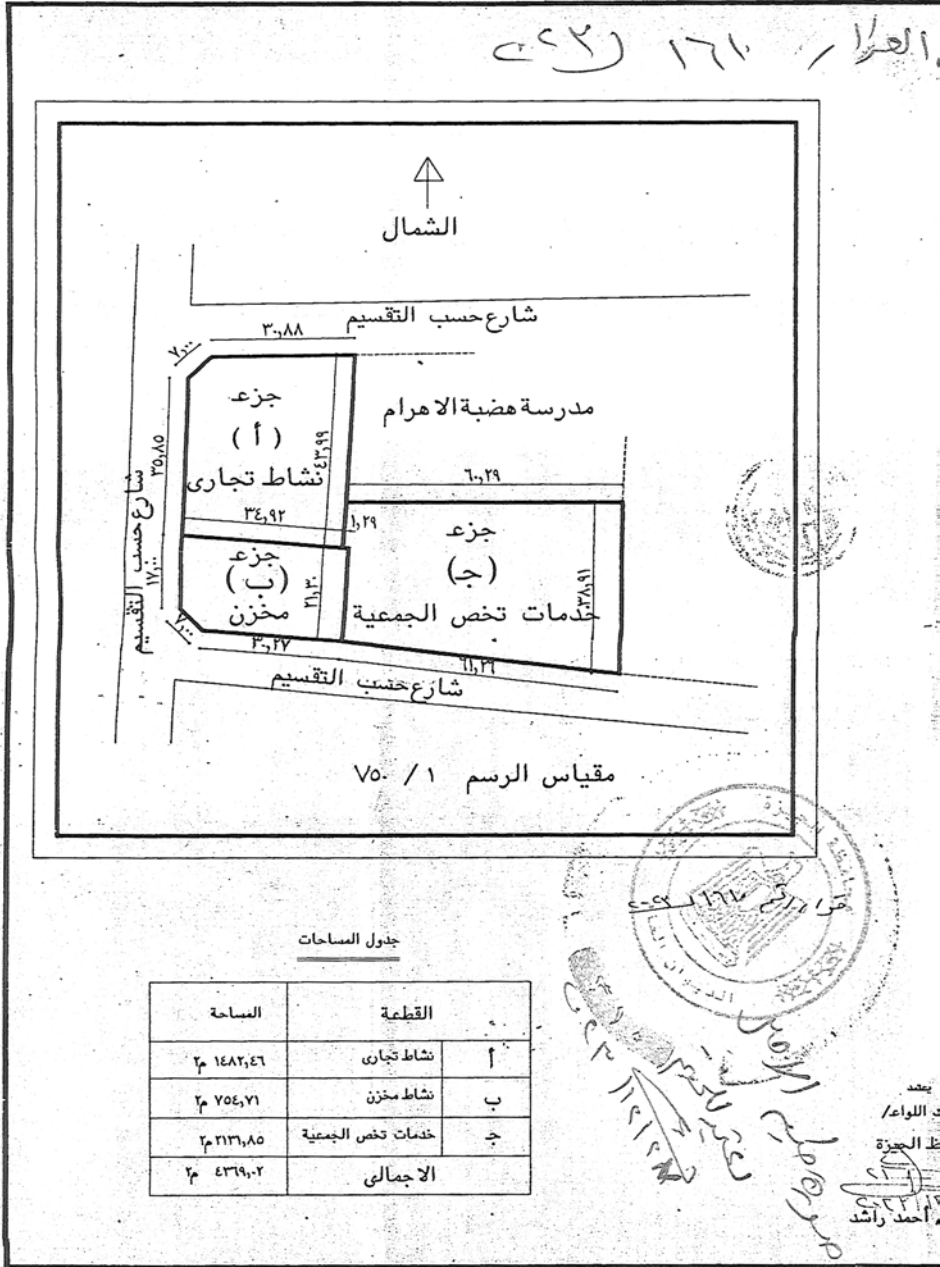 ١٦١٠
الشمال
شارع حسب التقسيم
٣٠,٨٨
٧,٠٠
جزء
(أ)
نشاط تجارى
٤٣,٩٩
٣٥,٨٥
مدرسة هضبة الاهرام
٦٠,٢٩
شارع حسب التقسيم
٣٤,٩٢
١,٢٩
جزء
(ب)
مخزن
٢١,٣٠
١٧,٠٠
جزء
(جـ)
خدمات تخص الجمعية
٣٨,٩١
٧,٠٠
٣٠,٢٧
شارع حسب التقسيم
مقياس الرسم ١ / ٧٥٠
جدول المساحات
القطعة المساحة
أ نشاط تجارى ١٤٨٢,٤٦ م٢
ب نشاط مخزن ٧٥٤,٧١ م٢
جـ خدمات تخص الجمعية ٢١٣١,٨٥ م٢
الاجمالى ٤٣٦٩,٠٢ م٢
يعتمد
اللواء/
الجيزة
أحمد راشد